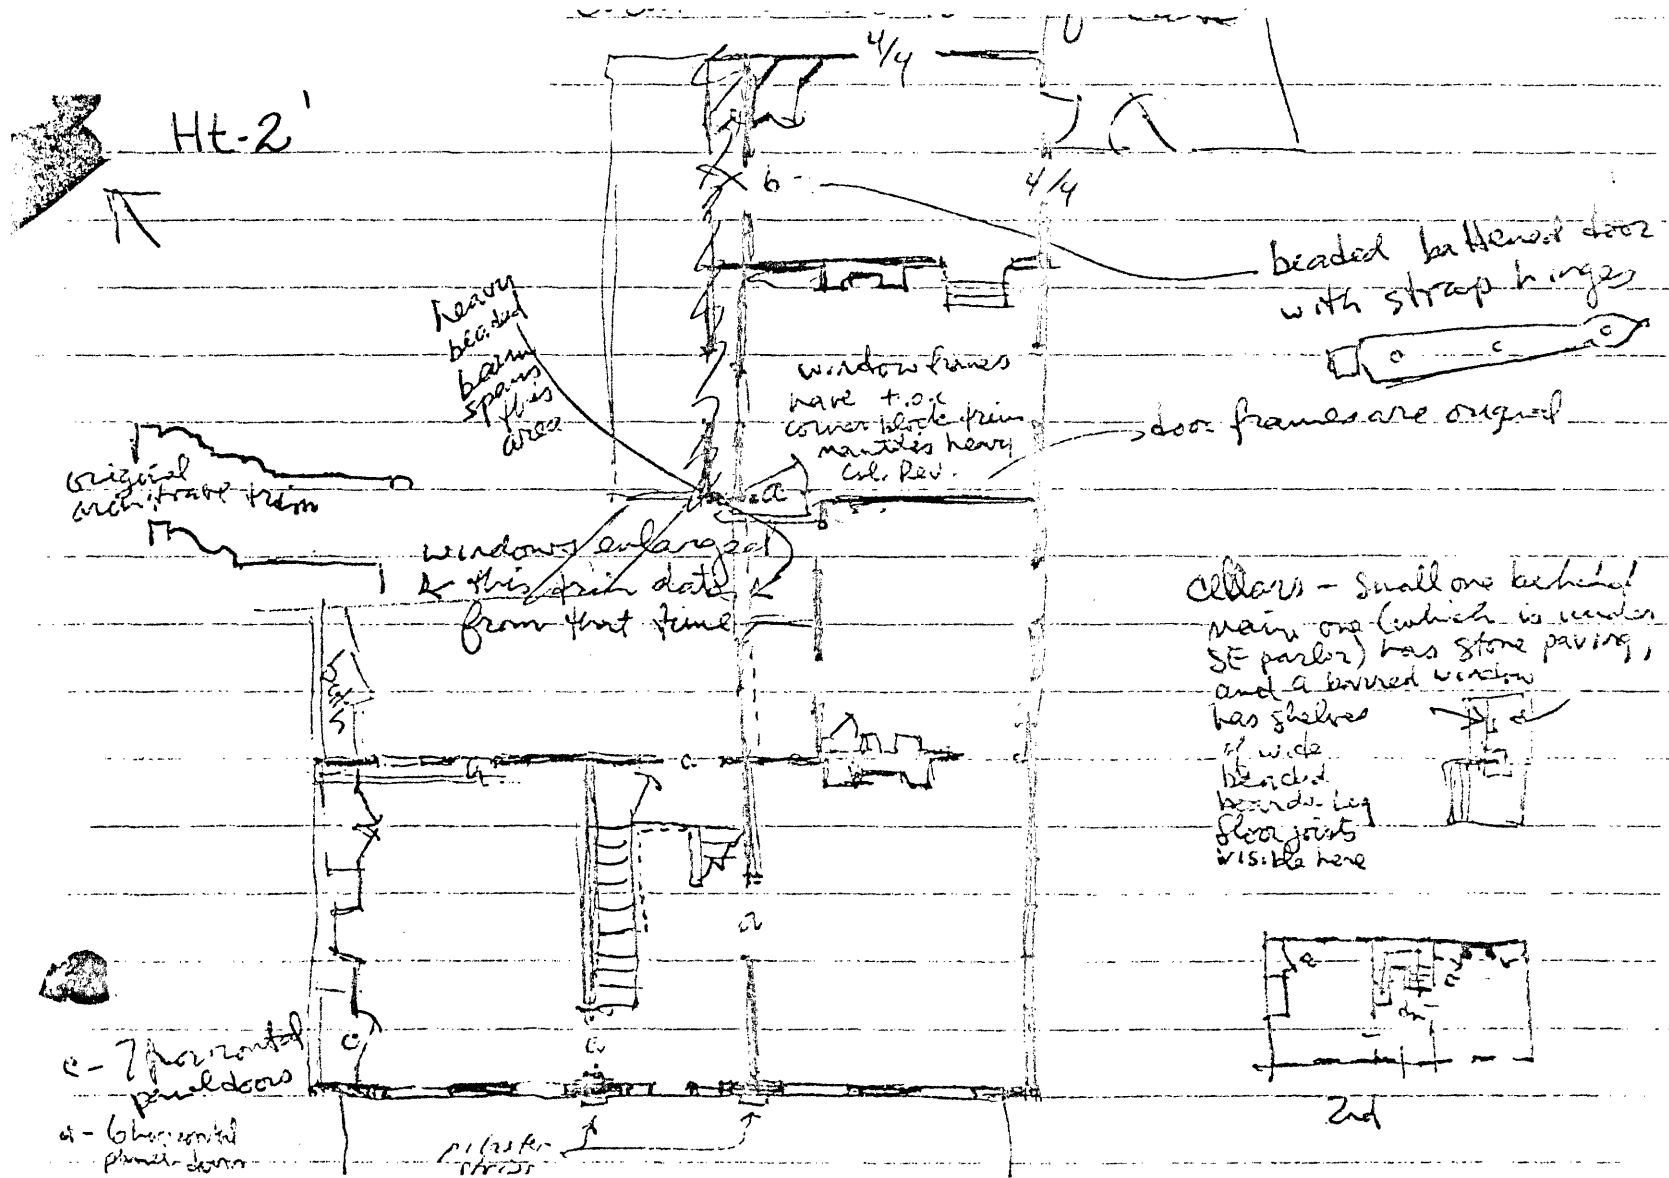 4/4
Ht-2'
b
4/4
beaded battened door
with strap hinges
heavy
beaded
beam
spans
this
area
window frames
have t.o.c
corner block trim
mantles heavy
Col. Rev.
door frames are original
original
architrave trim
a
windows enlarged
this trim dates
from that time
Cellars - Small one behind
main one (which is under
SE parlor) has stone paving,
and a barred window
has shelves
of wide
beaded
boards. Log
floor joists
visible here
a
a
a
a
c
c - 7 horizontal
panel doors
a - 6 horizontal
panel doors
pilaster
strips
2nd